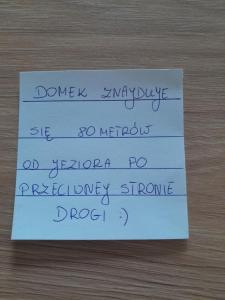 DOMEK ZNAYDUYE
SIĘ 80 METRÓW
OD YEZIORA PO
PRZECIWNEY STRONIE
DROGI :)